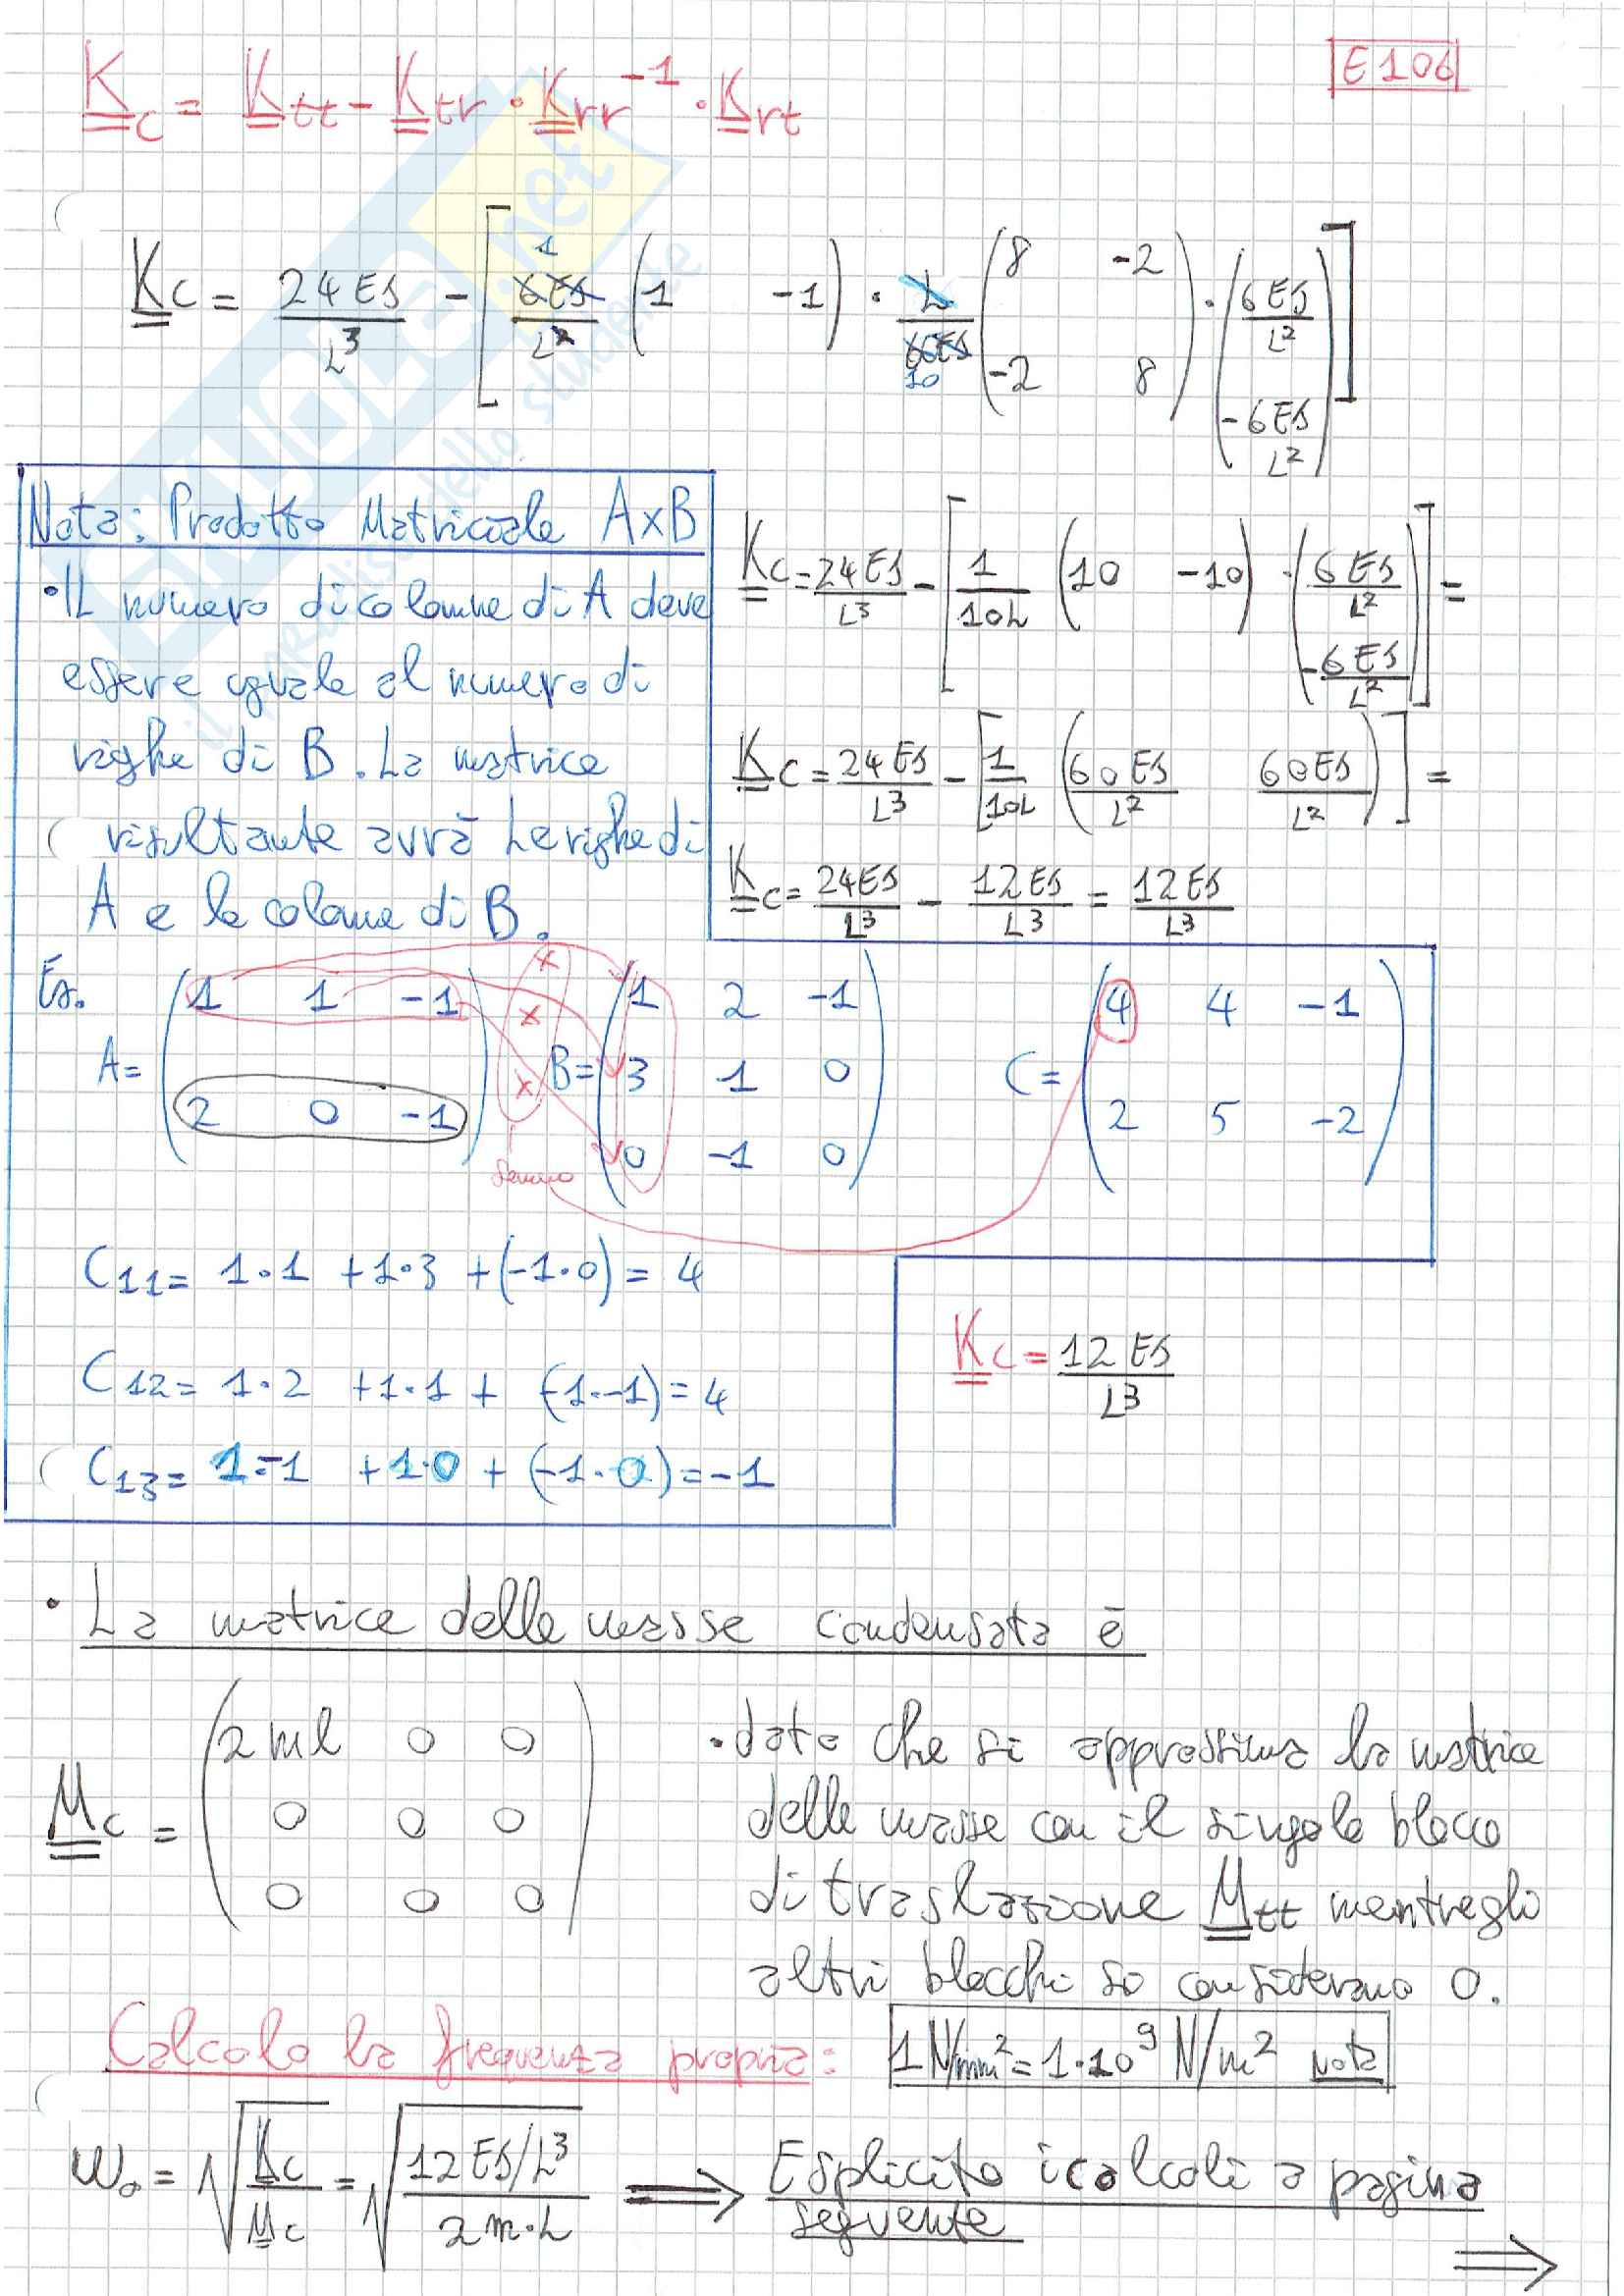 K̳c = K̳tt - K̳tr · K̳rr⁻¹ · K̳rt
E106
K̳c = 24EJ/L³ - [ 1 6EJ/L² (1 -1) · L/60EJ 10 (8 -2 / -2 8) · (6EJ/L² / -6EJ/L²) ]
Nota: Prodotto Matriciale A×B
• Il numero di colonne di A deve
essere uguale al numero di
righe di B. La matrice
risultante avrà le righe di
A e le colonne di B.
K̳c = 24EJ/L³ - [ 1/10L (10 -10) · (6EJ/L² / -6EJ/L²) ] =
K̳c = 24EJ/L³ - [ 1/10L (60EJ/L² 60EJ/L²) ] =
K̳c = 24EJ/L³ - 12EJ/L³ = 12EJ/L³
Es.
A = (1 1 -1 / 2 0 -1) × × × B = (1 2 -1 / 3 1 0 / 0 -1 0) C = (4 4 -1 / 2 5 -2)
C11 = 1·1 + 1·3 + (-1·0) = 4
C12 = 1·2 + 1·1 + (-1·-1) = 4
C13 = 1·-1 + 1·0 + (-1·0) = -1
K̳c = 12EJ/L³
• La matrice delle masse condensata è
M̳c = (2ml 0 0 / 0 0 0 / 0 0 0)
• dato che si approssima la matrice
delle masse con il singolo blocco
di traslazione M̳tt mentre gli
altri blocchi si considerano 0.
Calcolo la frequenza propria:
1 N/mm² = 1·10⁹ N/m² nota
ω₀ = √(K̳c/M̳c) = √((12EJ/L³)/(2m·L)) ⟹ Esplicito i calcoli a pagina
seguente
⟹
.net